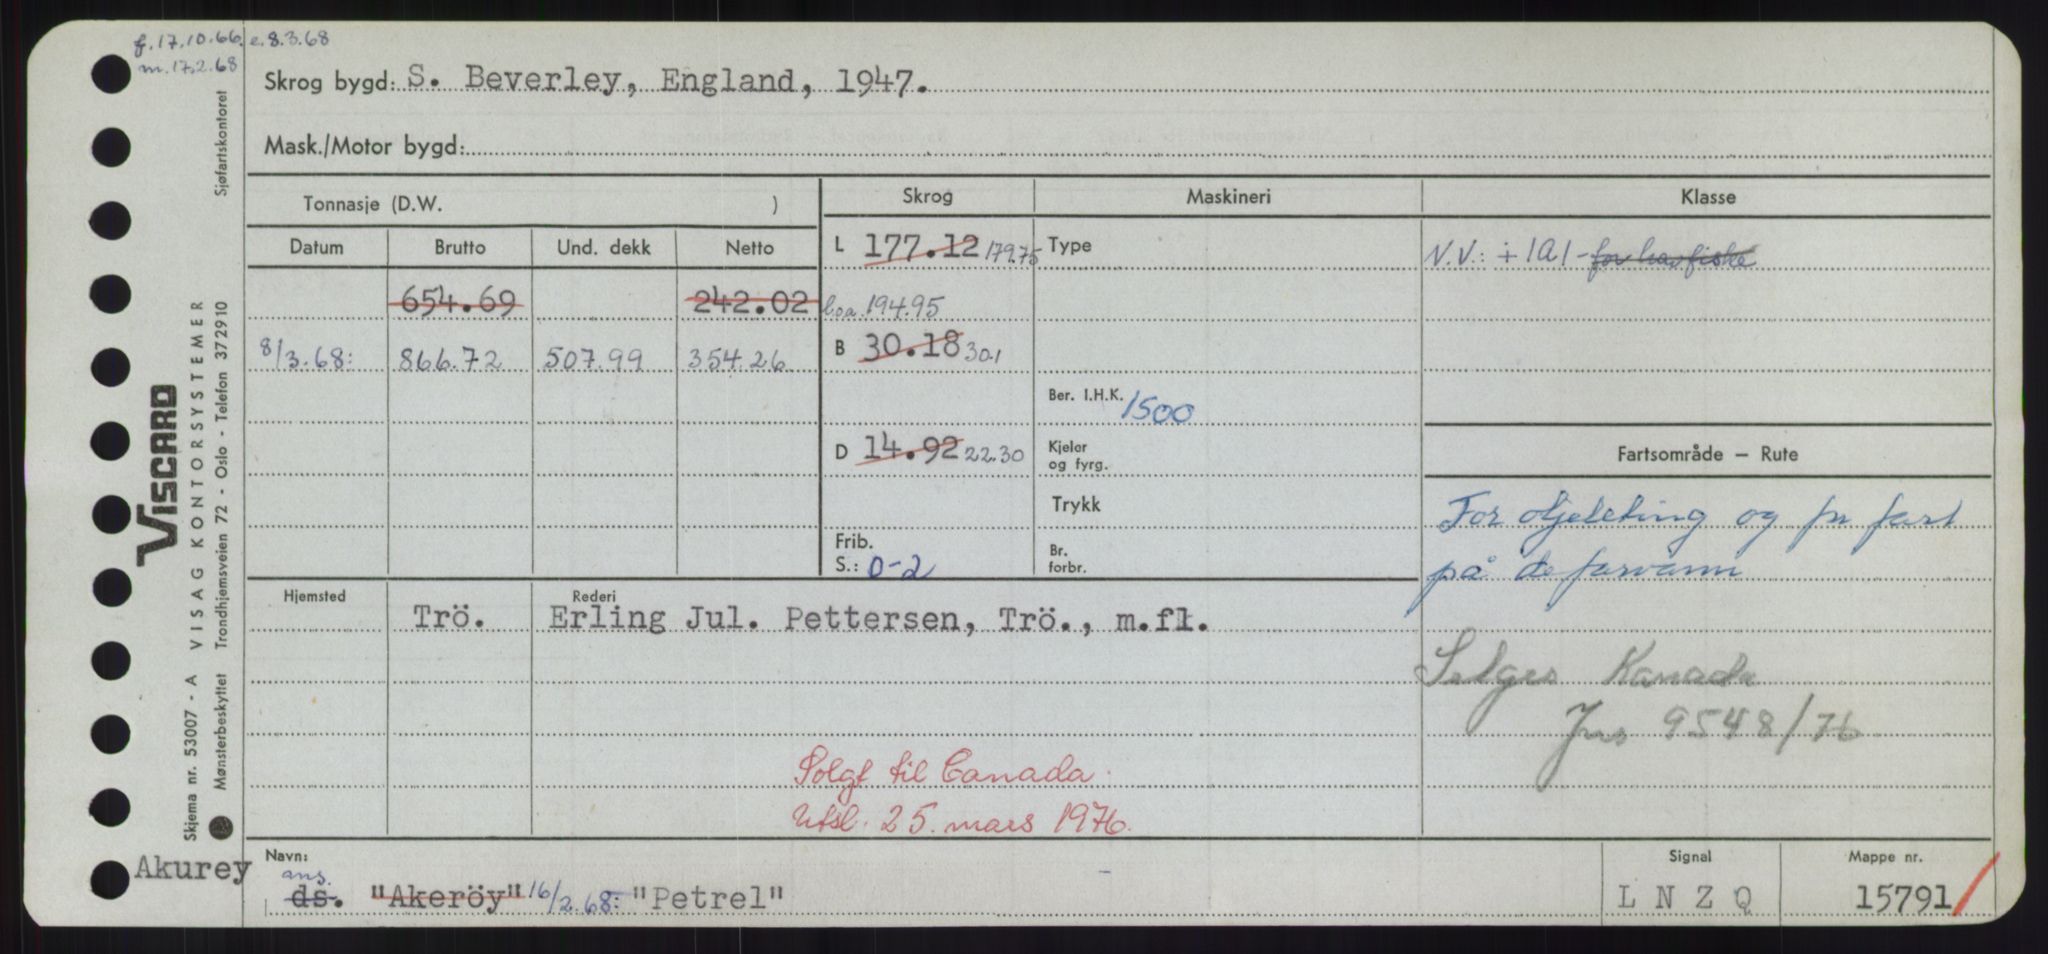 f. 17.10.66. e. 8.3.68
m. 17.2.68
Skrog bygd: S. Beverley, England, 1947.
Mask./Motor bygd:
Tonnasje (D.W. )
Skrog
Maskineri
Klasse
Datum Brutto Und. dekk Netto
L 177.12 179.75
Type
N.V.: + 1A1 - for havfiske
654.69 242.02
l.o.a. 194.95
8/3.68: 866.72 507.99 354.26
B 30.18 30.1
Ber. I.H.K. 1500
D 14.92 22.30
Kjeler
og fyrg.
Fartsområde – Rute
Trykk
For oljeleting og fri fart
Frib.
S.: 0-2
Br.
forbr.
på de farvann
Hjemsted
Rederi
Trö. Erling Jul. Pettersen, Trö., m.fl.
Selges Kanada
Jns 9548/76
Solgt til Canada.
Utsl. 25. mars 1976.
Navn:
Signal
Mappe nr.
Akurey
ms.
ds. "Akeröy" 16/2.68: "Petrel"
L N Z Q
15791
VISCARD
Skjema nr. 53007 - A VISAG KONTORSYSTEMER
Mønsterbeskyttet Trondhjemsveien 72 - Oslo - Telefon 372910 Sjøfartskontoret